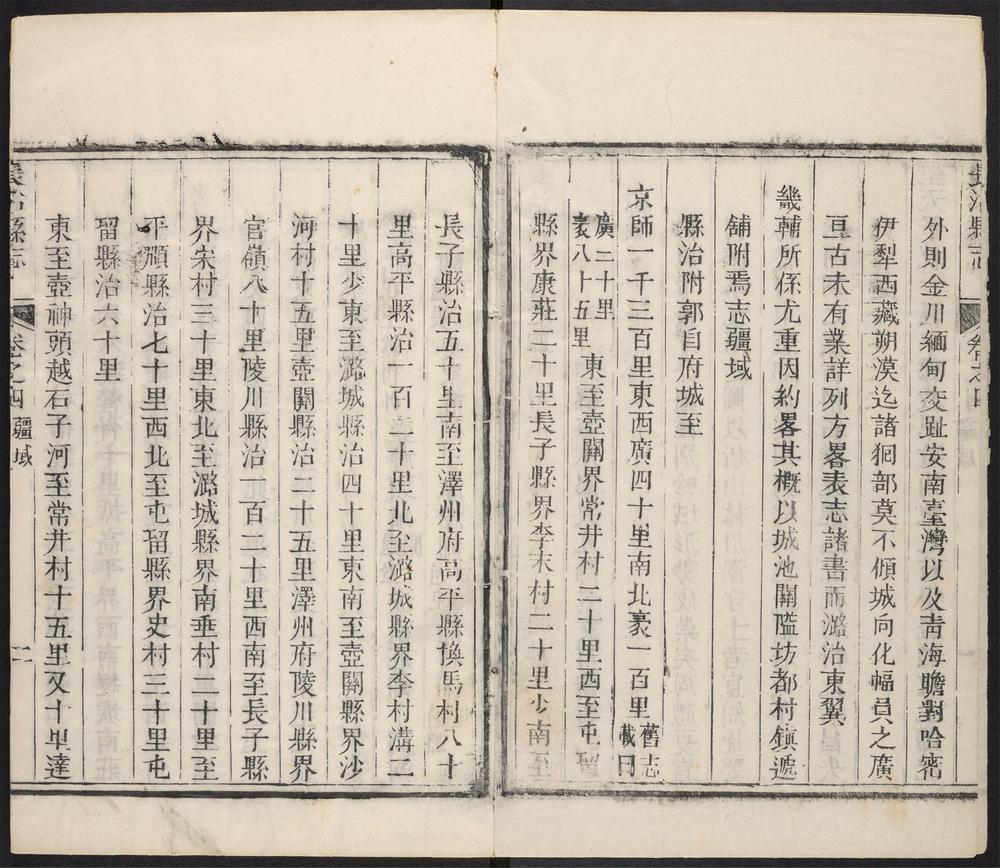 長治縣志
卷之四
外則金川緬甸交趾安南臺灣以及靑海瞻對哈密
伊犁西藏朔漠迄諸徊部莫不傾城向化幅員之廣
亘古未有業詳列方畧表志諸書而潞治東翼
畿輔所係尤重因約畧其概以城池關隘坊都村鎮遞
舖附焉志疆域
縣治附郭自府城至
京師一千三百里東西廣四十里南北袤一百里舊志載曰
廣二十里袤八十五里東至壺關界常井村二十里西至屯留
縣界康莊二十里長子縣界李末村二十里少南至
長子縣治五十里南至澤州府高平縣換馬村八十
里高平縣治一百二十里北至潞城縣界李村溝二
十里少東至潞城縣治四十里東南至壺關縣界沙
河村十五里壺關縣治二十五里澤州府陵川縣界
官嶺八十里陵川縣治一百二十里西南至長子縣
界宋村三十里東北至潞城縣界南垂村二十里至
平順縣治七十里西北至屯留縣界史村三十里屯
留縣治六十里
東至壺神頭越石子河至常井村十五里又十里達
長治縣志
卷之四 疆域
二